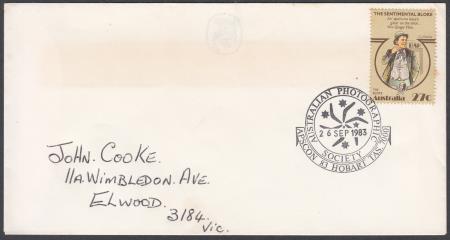 THE SENTIMENTAL BLOKE
Australia 27c
AUSTRALIAN PHOTOGRAPHIC
26 SEP 1983
SOCIETY
APSCON 83 HOBART TAS 7000
JOHN. COOKE.
11A. WIMBLEDON. AVE.
ELWOOD.
3184.
Vic.